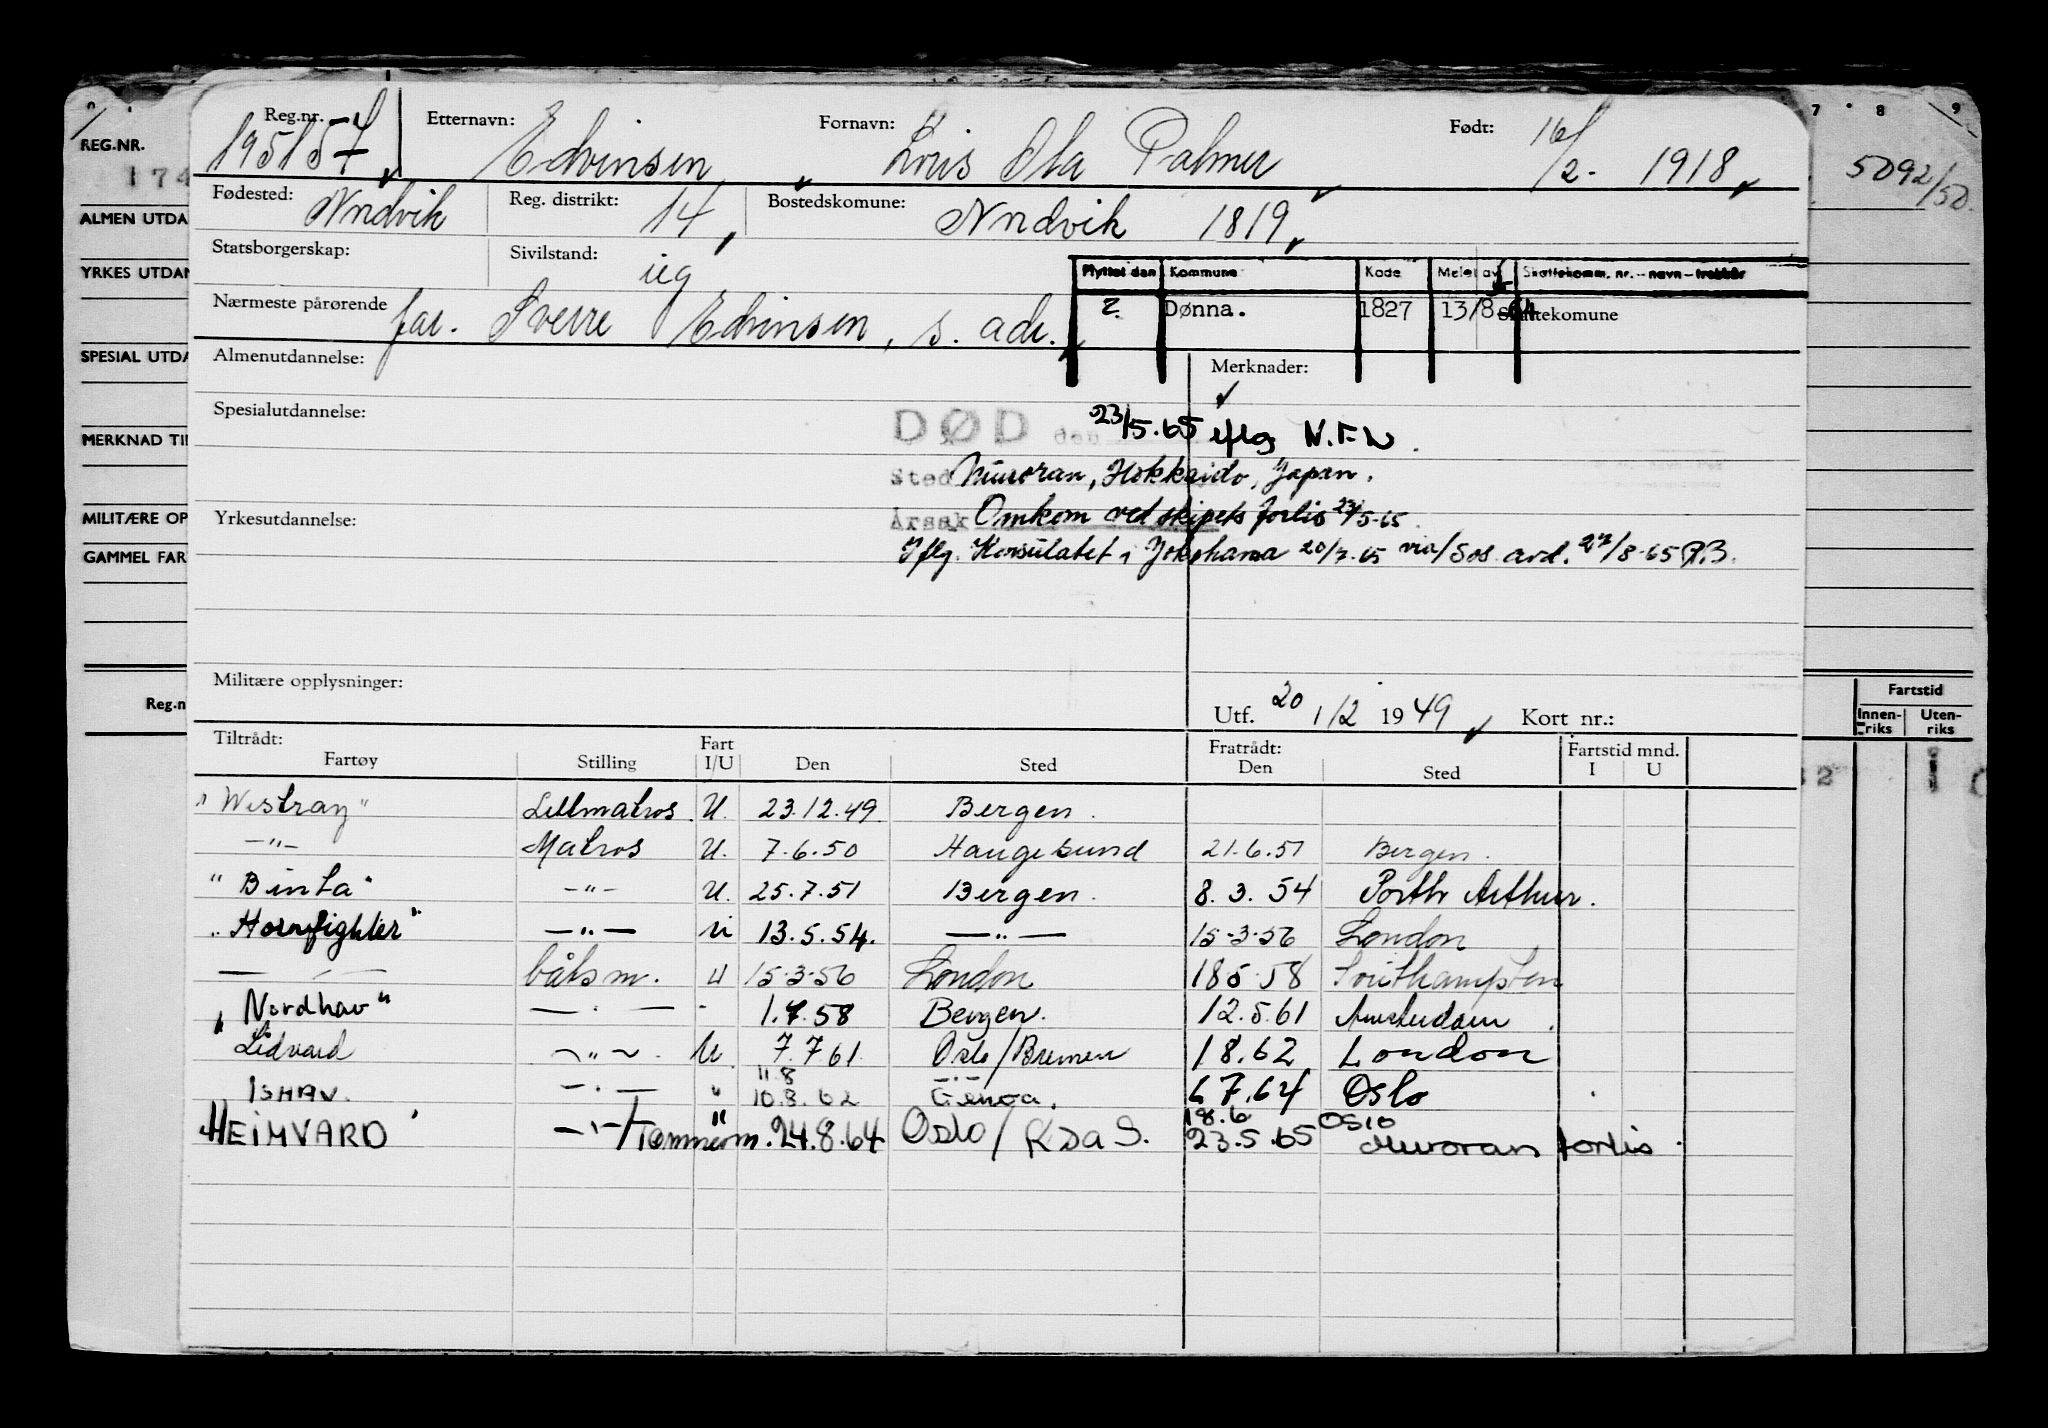 Reg.nr. Etternavn: Fornavn: Født: 16/2. 1918
195157 Edvinsen, Loris Ola Palmer
Fødested: Nordvik Reg. distrikt: 14 Bostedskomune: Nordvik 1819
Statsborgerskap: Sivilstand: ug
Flyttet den Kommune Kode Melet av Skattekomm. nr. – navn – trekkår
Nærmeste pårørende far. Sverre Edvinsen, s. adr.
2. Dønna. 1827 13/8 64 Skattekomune
Almenutdannelse: Merknader:
Spesialutdannelse:
DØD den 23/5.65 iflg N.F.N.
Sted Muroran, Hokkaido, Japan.
Yrkesutdannelse:
Årsak Omkom ved skipets forlis 23/5-65.
Iflg. Konsulatet i Yokohama 20/7.65 via/Sos. avd. 27/8-65 P.B.
Militære opplysninger:
Utf. 20/12 1949 Kort nr.:
Tiltrådt: Fratrådt: Fartstid mnd.
Fartøy Stilling Fart I/U Den Sted Den Sted I U
"Westray" Lettmatros U. 23.12.49 Bergen.
—"— Matros U. 7.6.50 Haugesund 21.6.51 Bergen.
"Binta" —"— U. 25.7.51 Bergen. 8.3.54 Porth Arthur.
"Hornfighter" —"— U 13.5.54. —"— 15-3-56 London
— " — båtsm. U 15-3-56 London 18 5-58 Southampten
"Nordhav" — " — - 1.7.58 Bergen. 12.5.61 Amsterdam.
Lidvard —"—. U. 7.7.61 Oslo/Bremen 1 8.62 London
11.8 —.—
ISHAV. —"— " 10.8.62 Genoa. 6 7.64 Oslo
18.6 OSLO
HEIMVARD —"— Tømmerm. " 24.8.64 Oslo/K Da S. 23.5.65 Muroran forlis.
REG.NR.
174
ALMEN UTDA
YRKES UTDAN
SPESIAL UTDA
MERKNAD TI
MILITÆRE OP
GAMMEL FAR
Reg.n
7 8 9
5092/50
Fartstid
Innenriks Utenriks